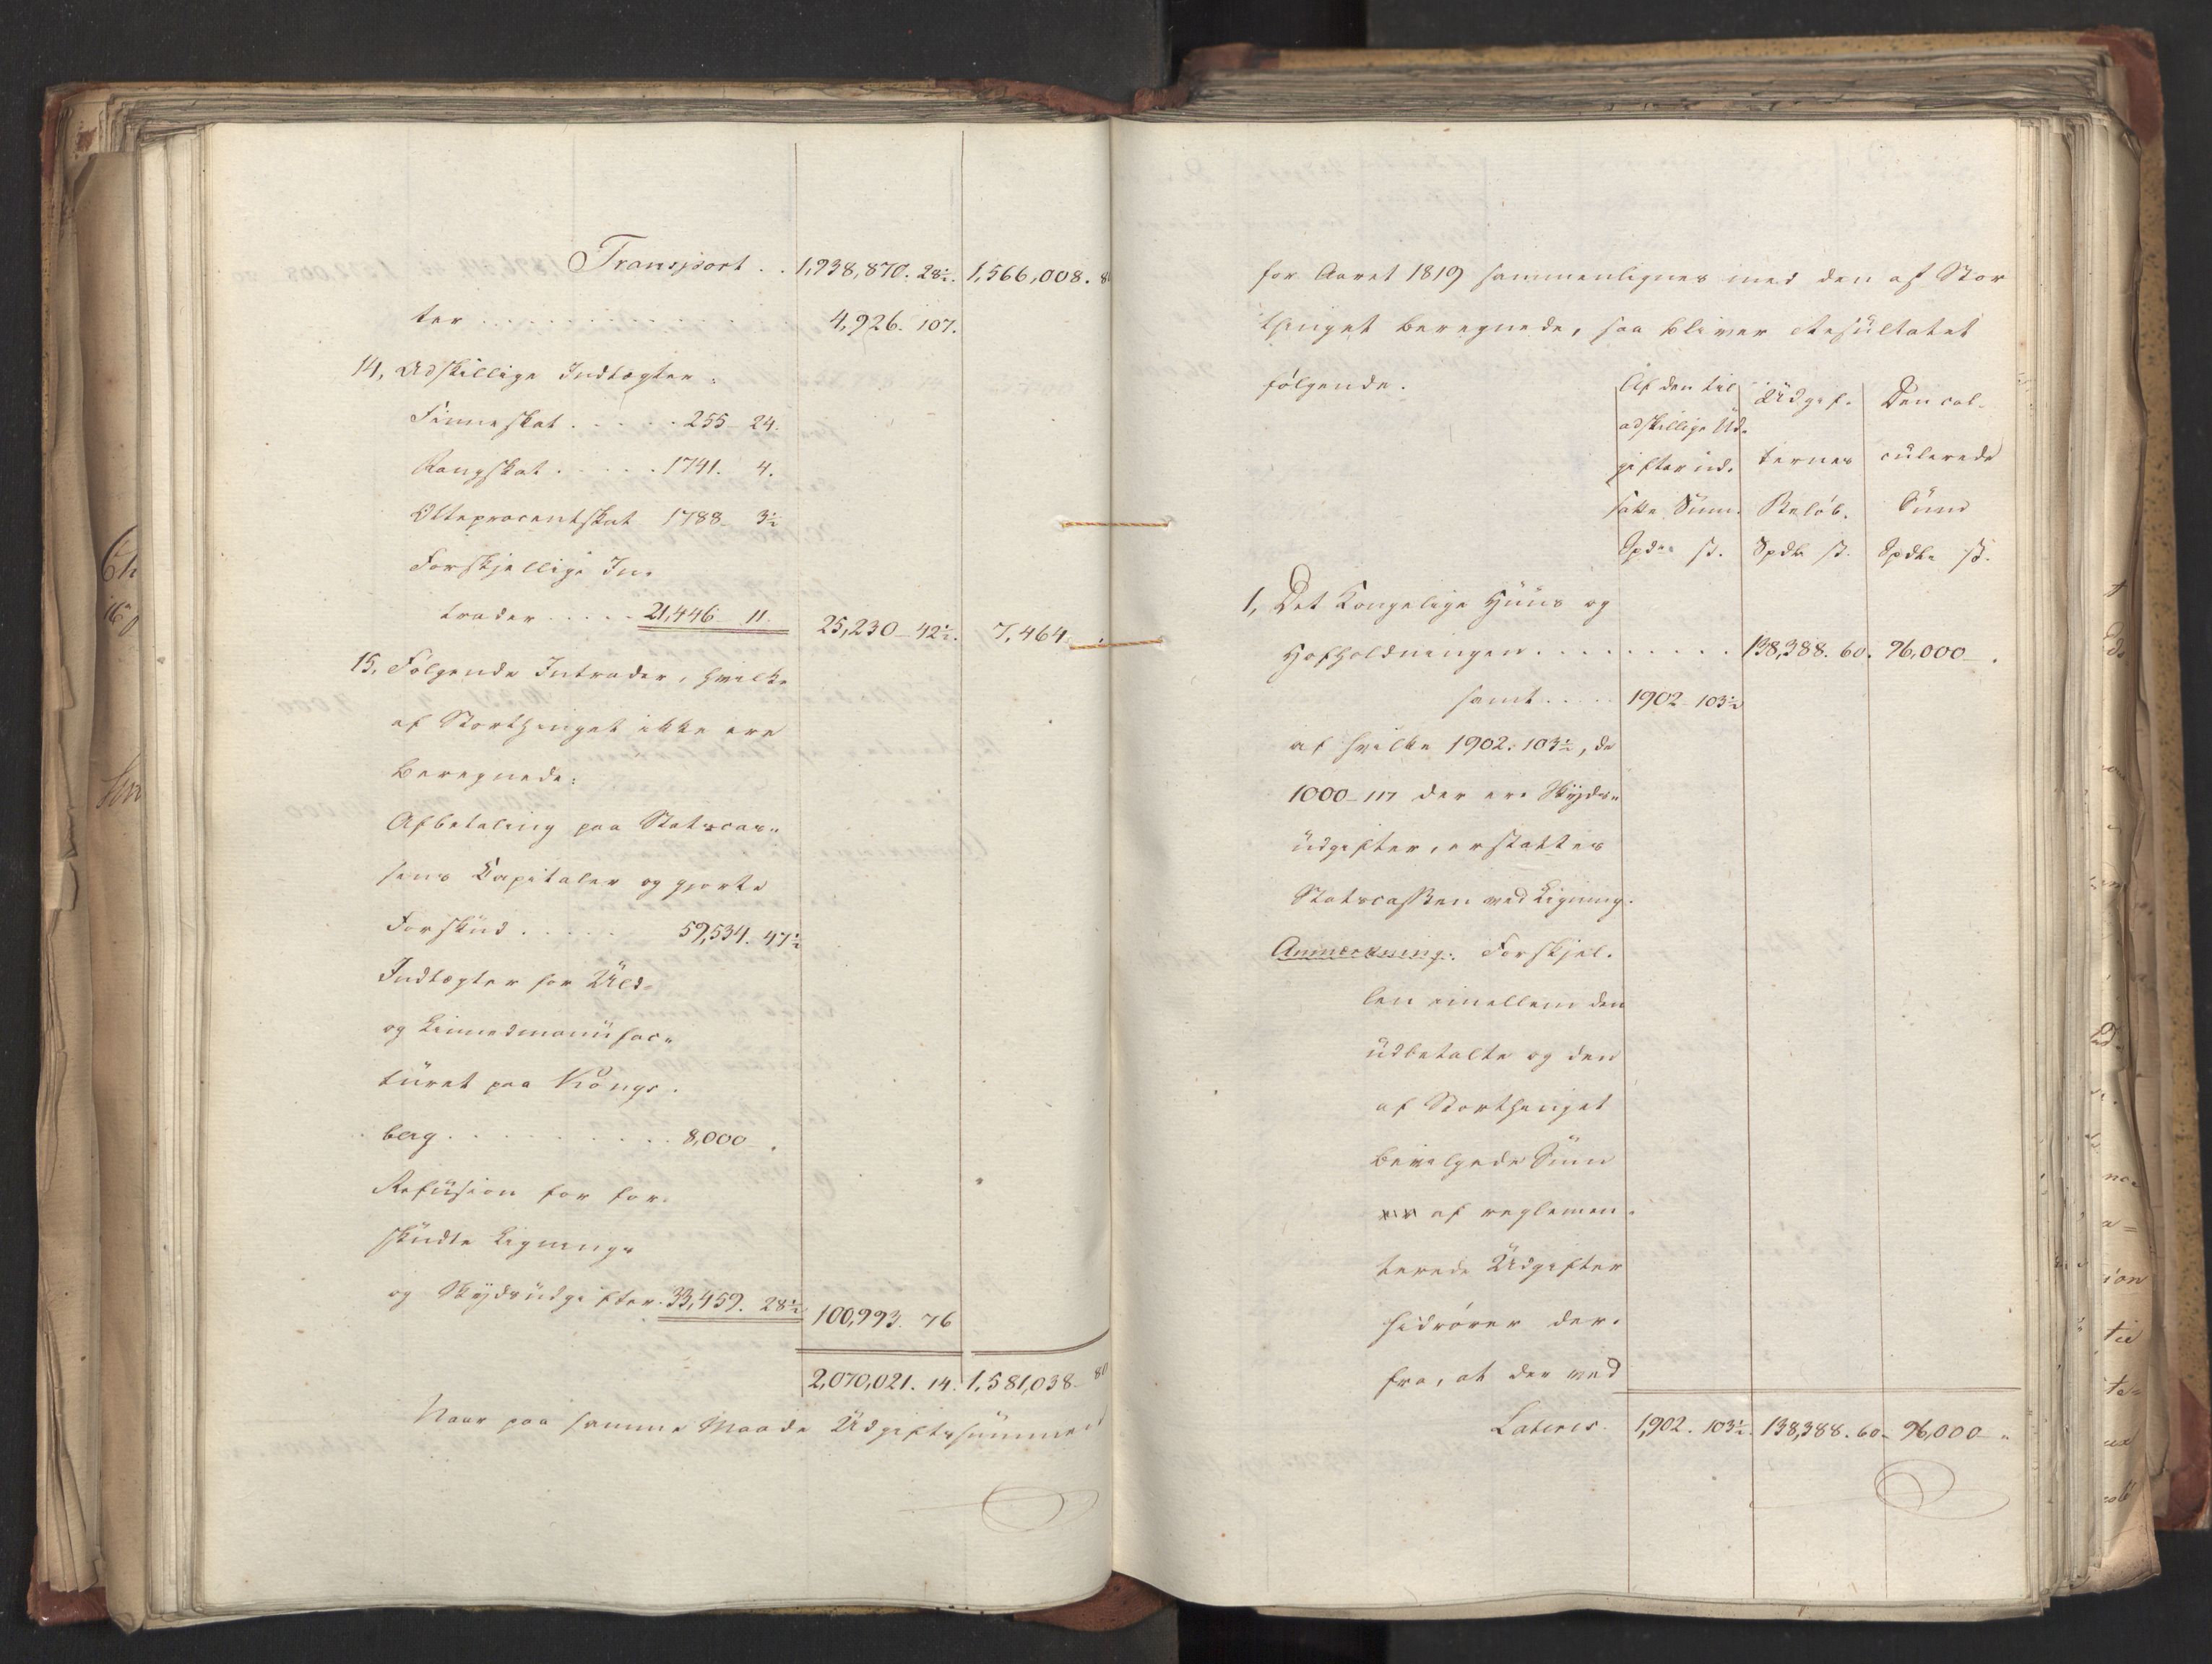 Transport . . 1,938,870. 28½. 1,566,008. 8
ter . . . . . . . . . . . . 4,926. 107.
14, Adskillige Indtægter:
Finneskat . . . . . 255 - 24.
Rangskat . . . . . 1741. 4.
Otteprocentskat 1788 - 3½
Forskjellige In-
trader . . . . . 21,446 11. 25,230 - 42½. 7,464.
15, Følgende Intrader, hvilke
af Storthinget ikke ere
beregnede:
Afbetaling paa Statscas-
sens Kapitaler og gjorte
Forskud . . . . . 59,534. 47½
Indtægter for Uld-
og Linnedmanufac-
turet paa Kongs-
berg . . . . . . . . . . 8,000 .
Refusion for for-
skudte Ligning-
og Skydsudgifter. 33,459. 28½ 100,993. 76
2,070,021. 14. 1,581,038 - 80
Naar paa samme Maade Udgiftssummen
for Aaret 1819 sammenlignes med den af Stor
thinget beregnede, saa bliver Resultatet
følgende.
Af den til adskillige Ud- gifter ud- satte Sum. Spdr ß.
Udgif- ternes Beløb. Spdlr ß.
Den cal- culerede Sum Spdlr ß.
1, Det Kongelige Huus og
Hofholdningen . . . . . . . . . 138,388. 60. 96,000 - .
samt . . . . 1902 - 103½
af hvilke 1902: 103½, de
1000 - 117 der ere Skyds-
udgifter, erstattes
Statscassen ved Ligning.
Anmerkning: Forskjel-
len imellem den
udbetalte og den
af Storthinget
bevilgede Sum
af reglemen-
terede Udgifter
hidrører der-
fra, at der ved
Lateris. 1,902. 103½. 138,388. 60 - 96,000 - "